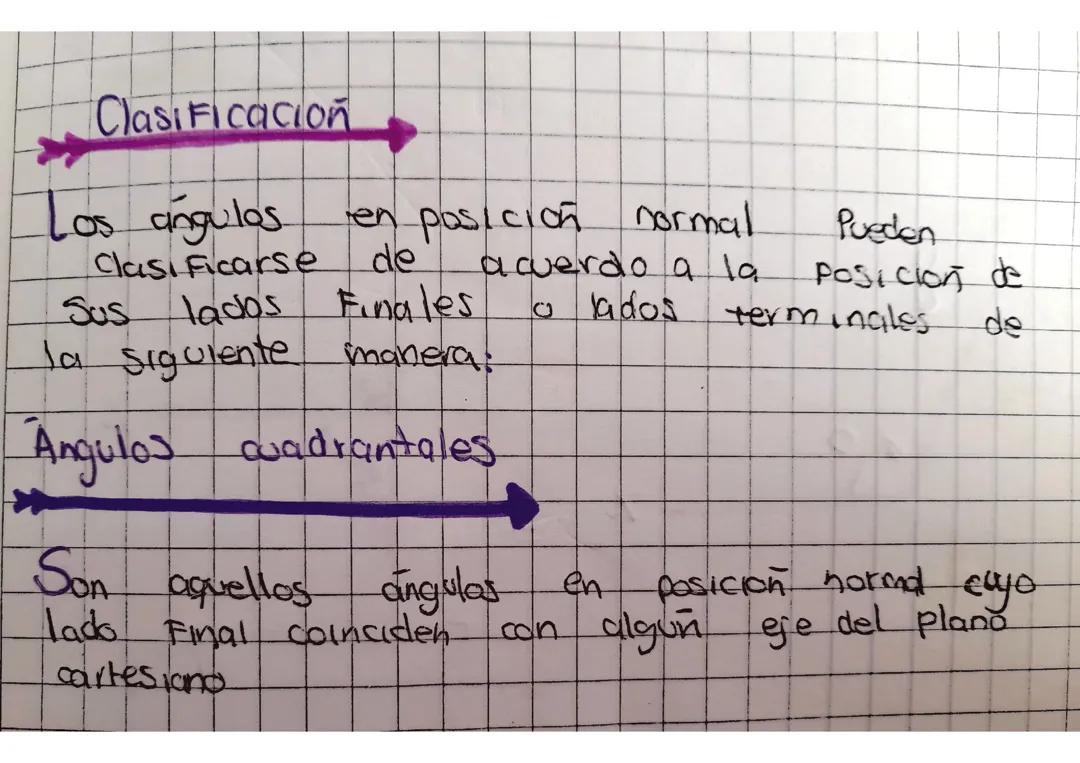 Clasificación
Los ángulos en posición normal Pueden
clasificarse de acuerdo a la posición de
sus lados Finales o lados terminales de
la siguiente manera:
Ángulos cuadrantales
Son aquellos ángulos en posición normal cuyo
lado Final coinciden con algún eje del plano
cartesiano